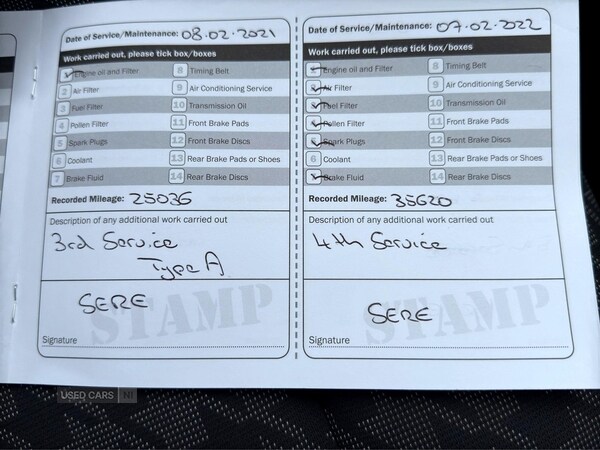 Date of Service/Maintenance: 08.02.2021
Work carried out, please tick box/boxes
Engine oil and Filter
8 Timing Belt
2 Air Filter
9 Air Conditioning Service
3 Fuel Filter
10 Transmission Oil
4 Pollen Filter
11 Front Brake Pads
5 Spark Plugs
12 Front Brake Discs
6 Coolant
13 Rear Brake Pads or Shoes
7 Brake Fluid
14 Rear Brake Discs
Recorded Mileage: 25036
Description of any additional work carried out
3rd Service
Type A
SERE
STAMP
Signature
Date of Service/Maintenance: 07.02.2022
Work carried out, please tick box/boxes
Engine oil and Filter
8 Timing Belt
Air Filter
9 Air Conditioning Service
Fuel Filter
10 Transmission Oil
Pollen Filter
11 Front Brake Pads
Spark Plugs
12 Front Brake Discs
6 Coolant
13 Rear Brake Pads or Shoes
Brake Fluid
14 Rear Brake Discs
Recorded Mileage: 35620
Description of any additional work carried out
4th Service
SERE
STAMP
Signature
USED CARS NI